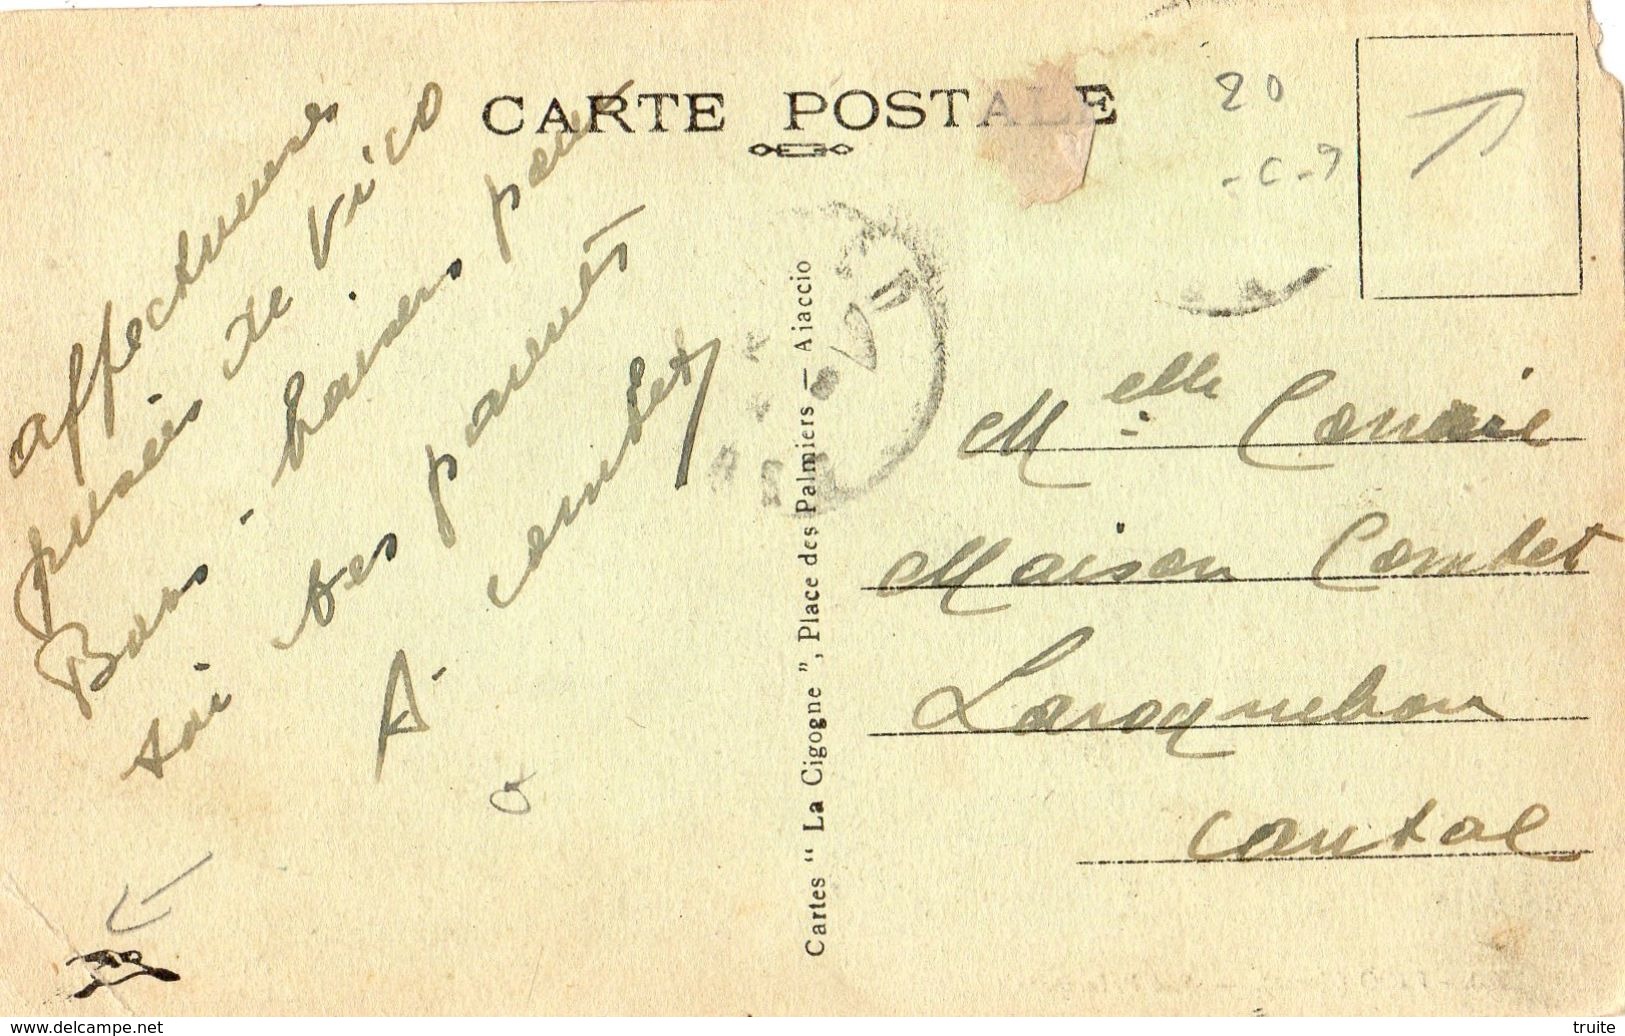 CARTE POSTALE
20
affectueuses
pensées de Vico
Bons baisers pour
toi tes parents
A. Combet
Cartes " La Cigogne ", Place des Palmiers — Aiaccio
Melle
Maison Combet
Laroquebrou
Cantal
www.delcampe.net
truite